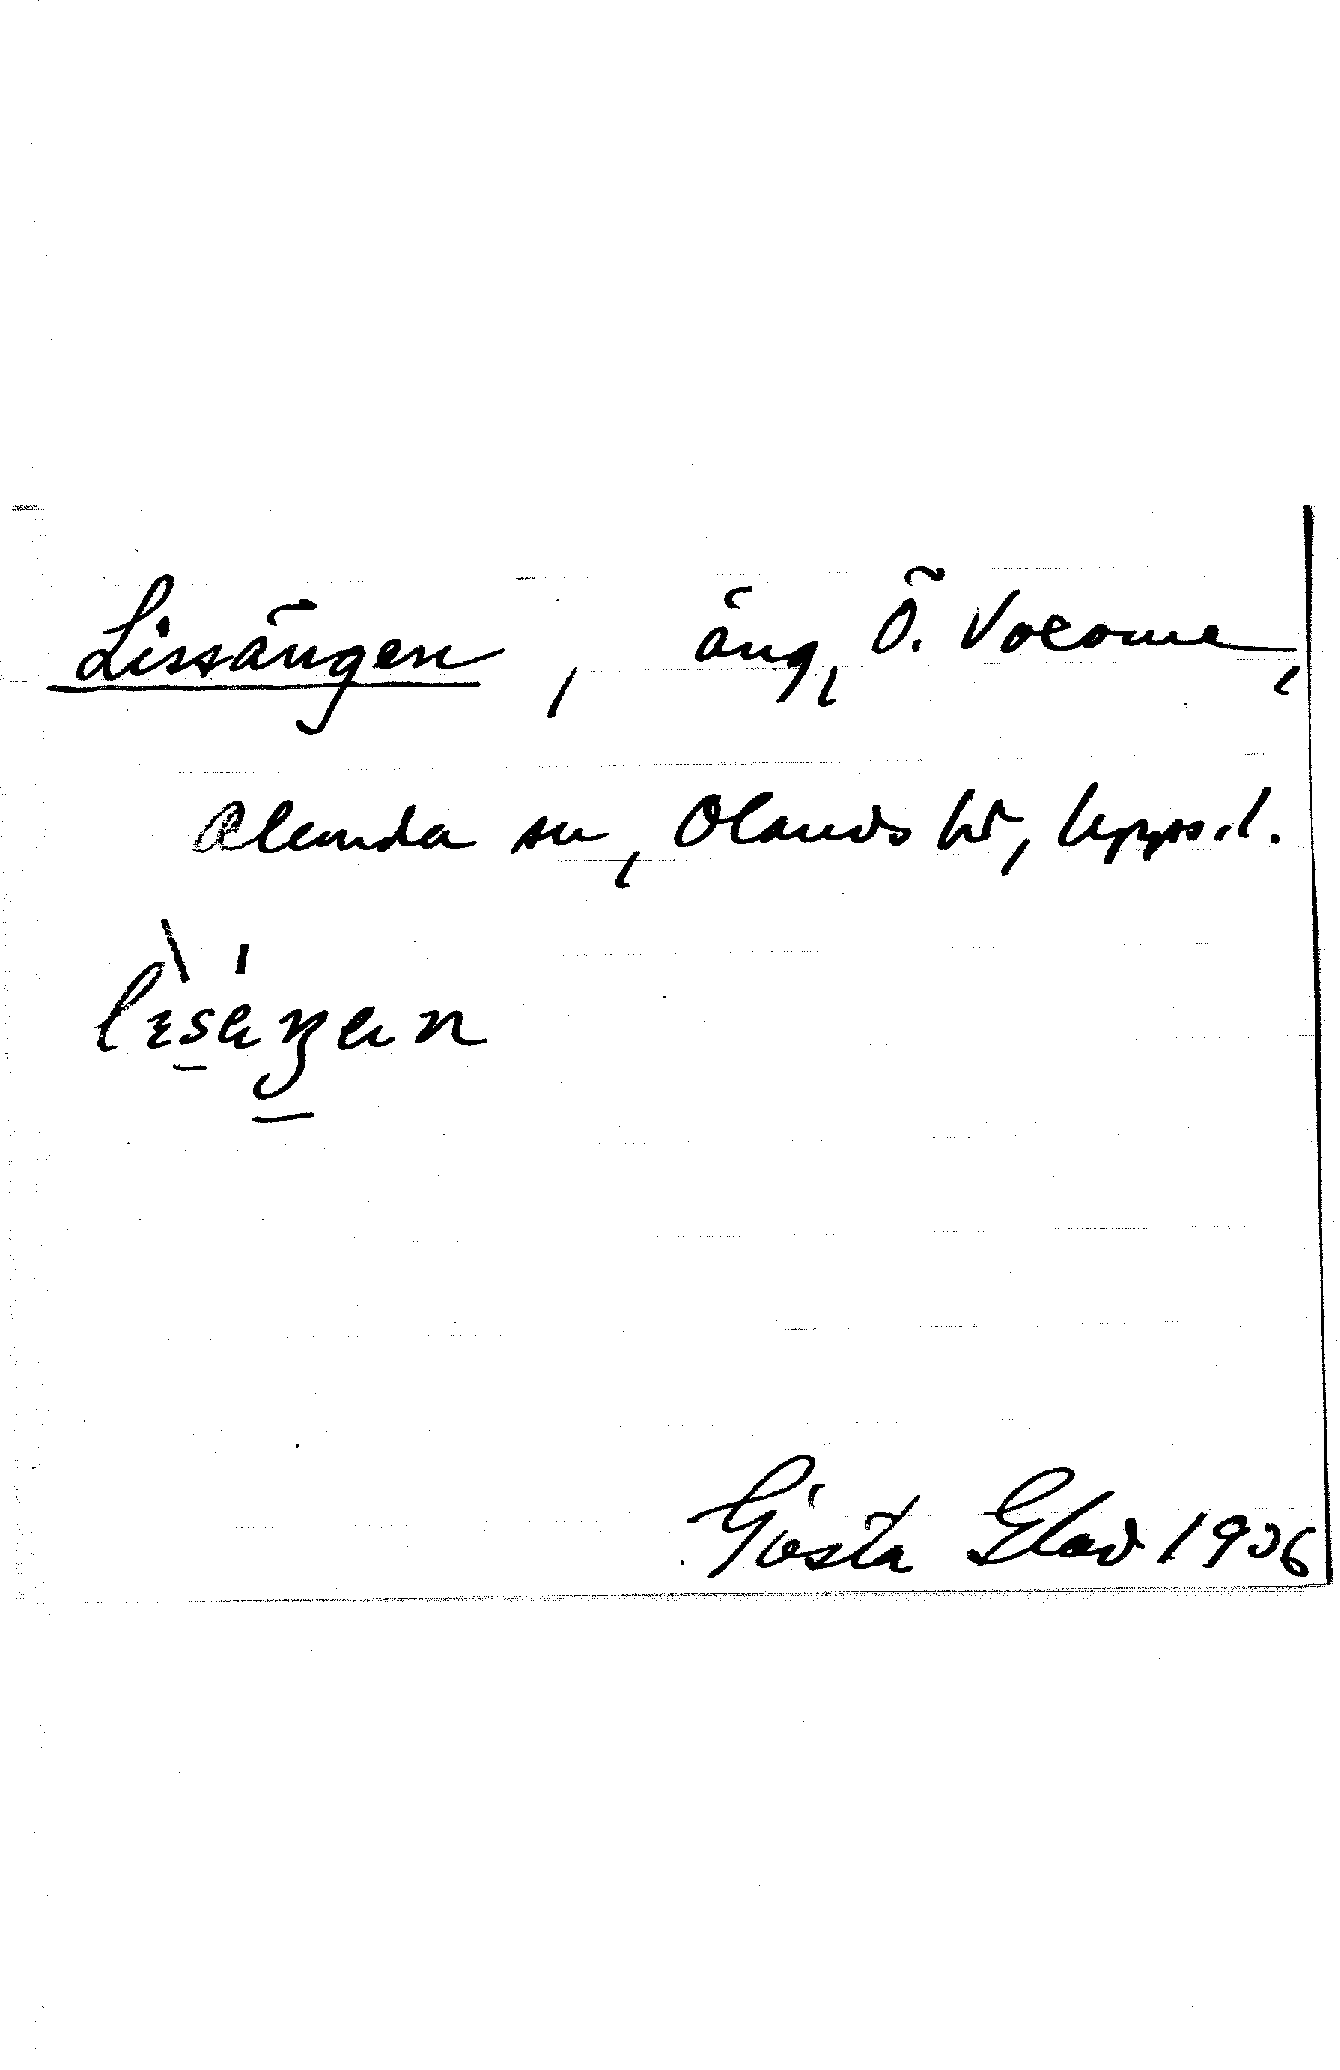 Lissängen, äng, Ö. Volome,
Alunda sn, Olands hd, Upps. l.
Gösta Glad 1936